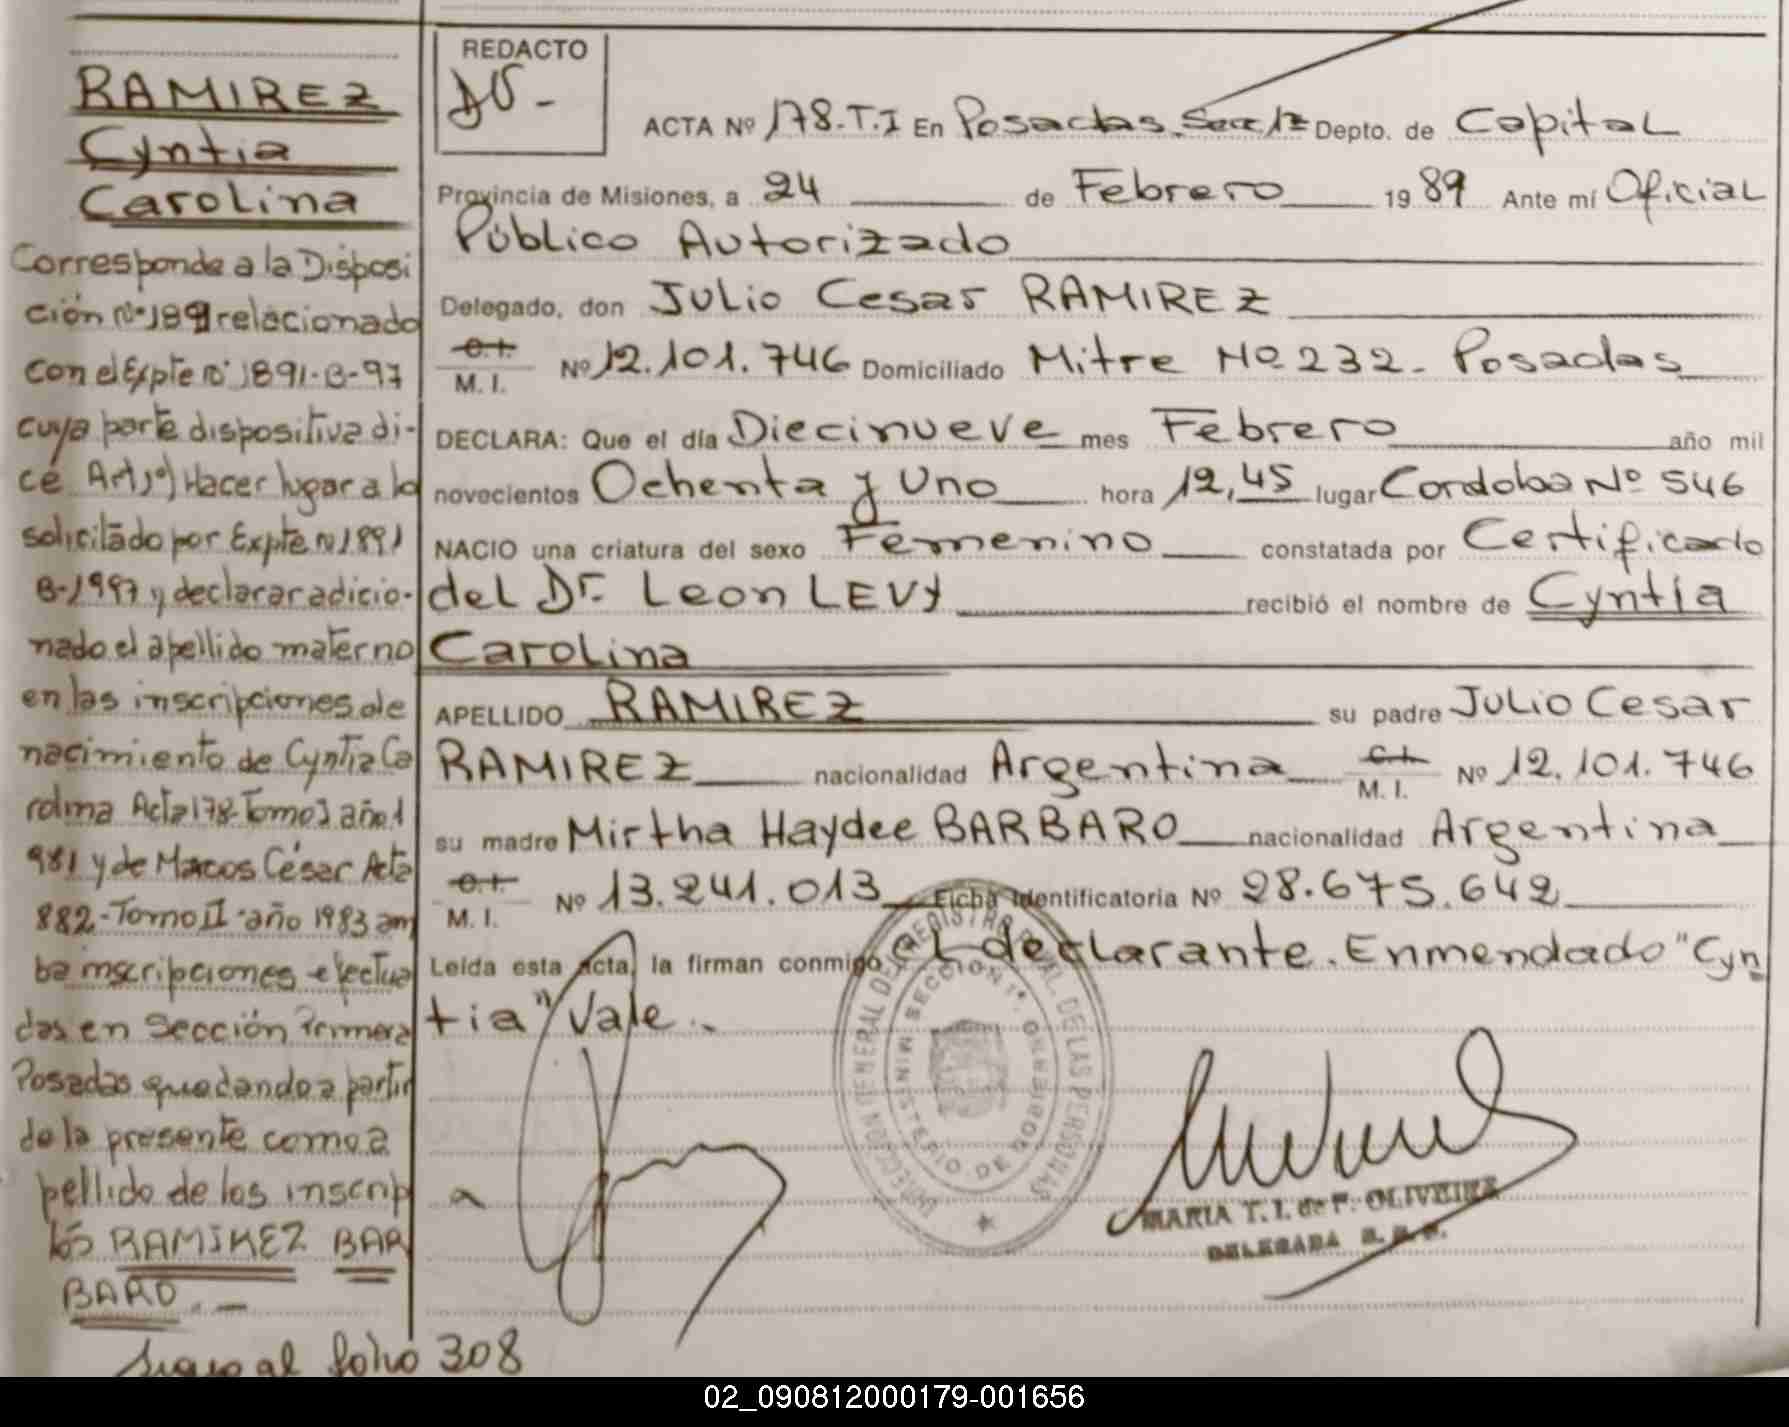 RAMIREZ
Cyntia
Carolina
Corresponde a la Disposi
ción nº 189 relacionado
con el Expte nº 1891-B-97
cuya parte dispositiva di-
ce Art 1º) Hacer lugar a lo
solicitado por Expte nº 1891
B-1997 y declarar adicio-
nado el apellido materno
en las inscripciones de
nacimiento de Cyntia Ca
rolina Acta 178-Tomo I año 1
981 y de Marcos César Acta
882-Tomo II-año 1983 am
ba inscripciones efectua
das en Sección Primera
Posadas quedando a partir
de la presente como a
pellido de los inscrip
tos RAMIREZ BAR
BARO.-
Sigue al folio 308
REDACTO
ACTA Nº 178.T.I En Posadas. Secc 1ª Depto. de Capital
Provincia de Misiones, a 24 de Febrero 1989 Ante mí Oficial
Público Autorizado
Delegado, don Julio Cesar RAMIREZ
C.I.
M. I. Nº 12.101.746 Domiciliado Mitre Nº 232. Posadas
DECLARA: Que el día Diecinueve mes Febrero año mil
novecientos Ochenta y Uno hora 12,45 lugar Cordoba Nº 546
NACIO una criatura del sexo Femenino constatada por Certificado
del Dr. Leon LEVY recibió el nombre de Cyntia
Carolina
APELLIDO RAMIREZ su padre Julio Cesar
RAMIREZ nacionalidad Argentina C.I. M. I. Nº 12.101.746
su madre Mirtha Haydee BARBARO nacionalidad Argentina
C.I.
M. I. Nº 13.241.013 Ficha Identificatoria Nº 28.675.642
Leída esta acta, la firman conmigo el declarante. Enmendado "Cyn
tia" Vale.-
DIRECCION GENERAL DEL REGISTRO DE LAS PERSONAS
SECCION 1ª. MINISTERIO DE GOBIERNO
MARIA T. I. de F. OLIVEIRA
DELEGADA
02_090812000179-001656